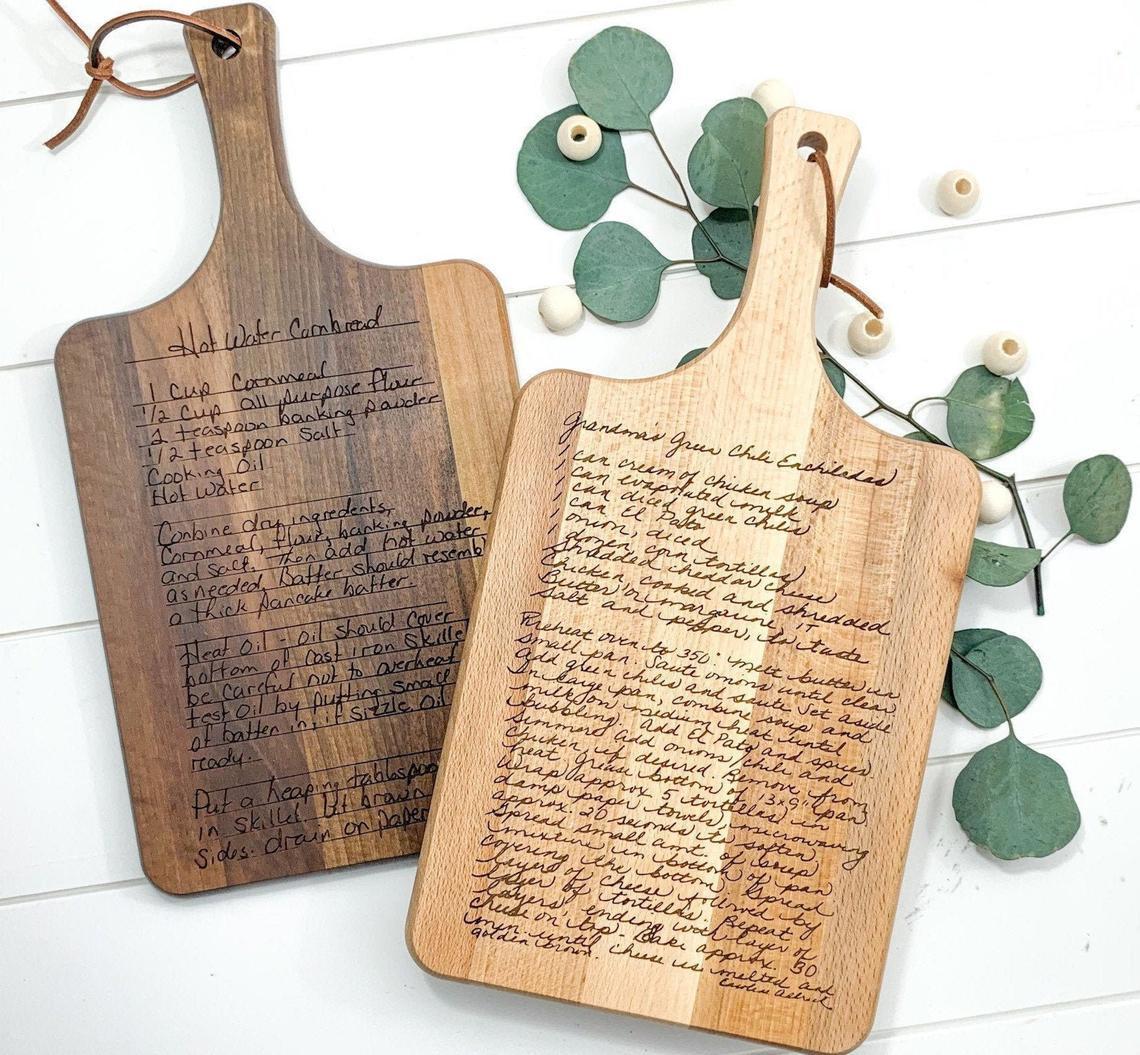 Hot Water Cornbread
1 Cup Cornmeal
1/2 Cup all purpose flour
1 teaspoon banking powder
1/2 teaspoon Salt
Cooking Oil
Hot Water
Conbine dry ingredients,
Cornmeal, flour, banking powder,
and salt. Then add hot water
as needed, batter should resemb
a thick pancake batter.
Heat Oil - Oil should cover
bottom of Cast iron Skille
be careful not to overheat
test Oil by putting small
of batter in; if Sizzle Oil
ready.
Put a heaping tablespoo
in skillet. Let brown
sides. drain on paper
Grandma's Green Chili Enchiladas
1 can cream of chicken soup
1 can evaporated milk
1 can diced green chilies
1 can El Pato
1 onion, diced
1 dozen corn tortillas
Shredded cheddar cheese
Chicken, cooked and shredded
Butter or margarine 1T
Salt and pepper, to taste
Preheat oven to 350° Melt butter in
small pan. Sauté onions until clear
Add green chilis and sauté. Set aside
In large pan, combine soup and
milk on medium heat until
bubbling. Add El Pato and spices
Simmer. Add onions, chili and
chicken if desired. Remove from
heat. Grease bottom of 13x9" pan
Wrap approx 5 tortillas in
damp paper towels, microwaving
approx. 20 seconds to soften
Spread small amt of soup
mixture in bottom of pan
covering the bottom. Spread
layers of cheese followed by
layer of tortillas. Repeat
layers, ending with layer of
cheese on top. Bake approx. 30
min. until cheese is melted and
golden brown.